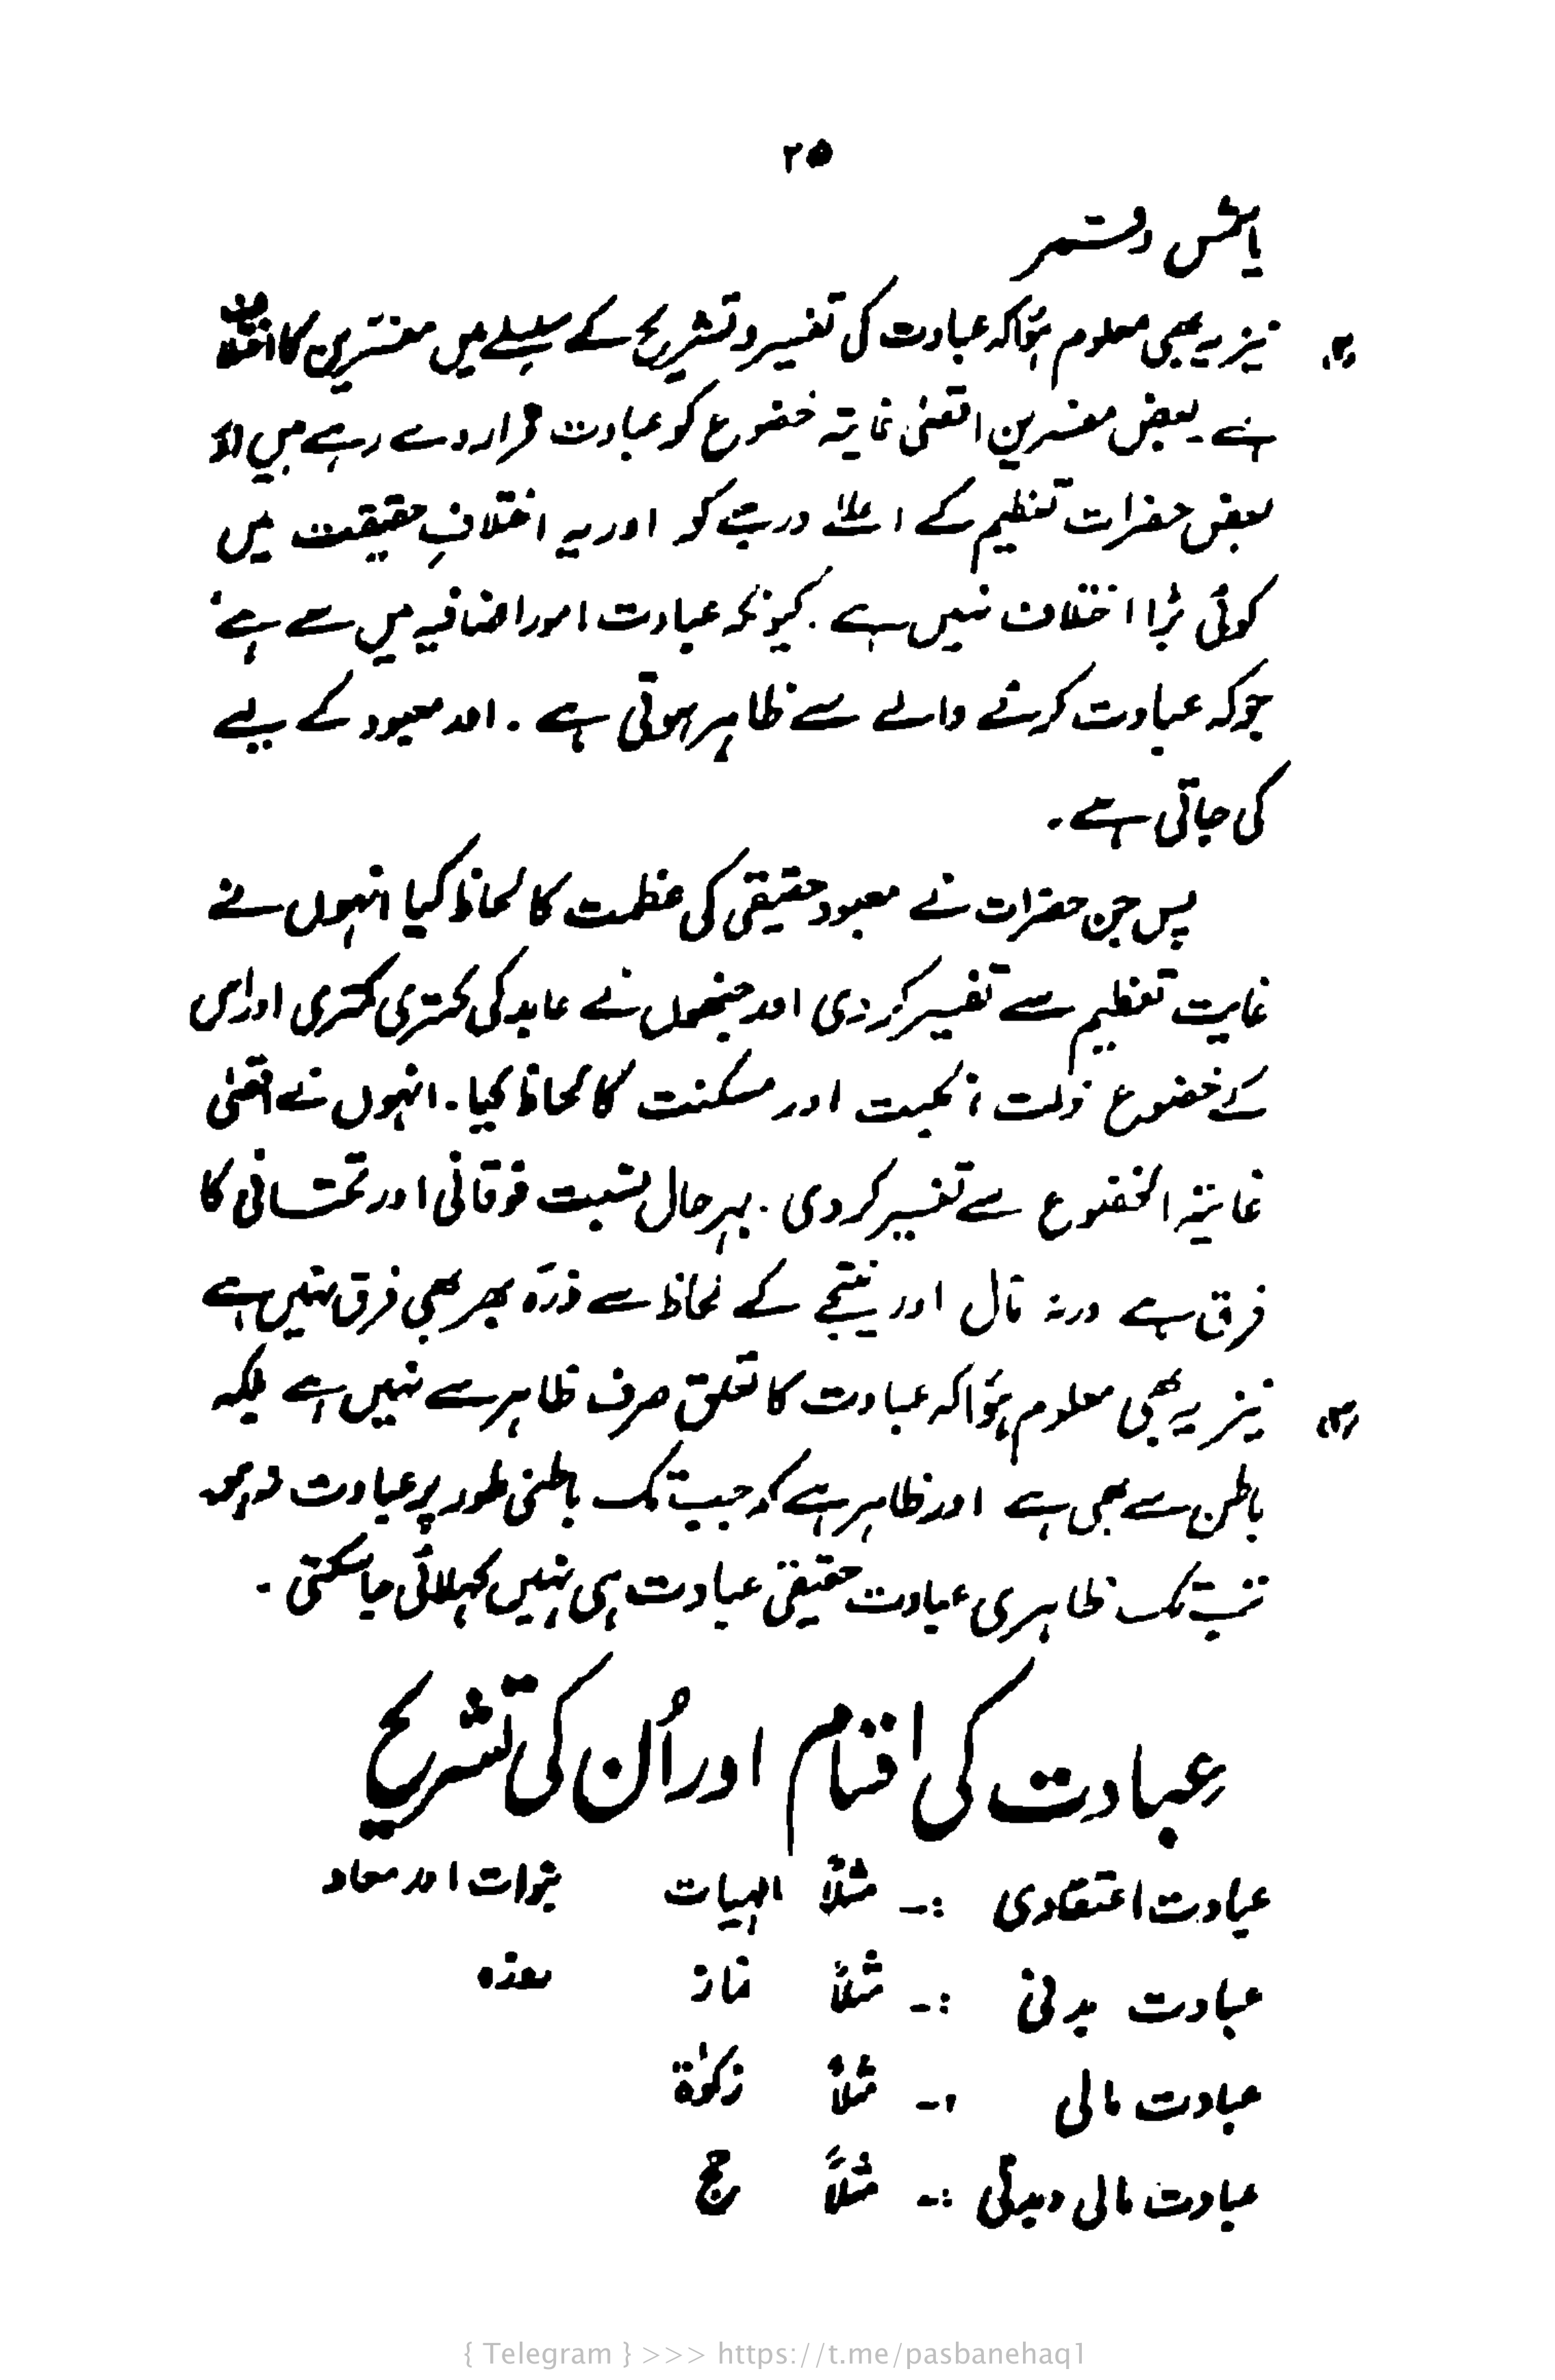 ۲۵
یا شمس و قمر
(۲) نیز یہ بھی معلوم ہؤا کہ عبادت کی تفسیر و تشریح کے سلسلے میں مفسّرین کا اختلاف
ہے۔ بعض مفسرین اقصٰی غایتہ خضوع کو عبادت قرار دے رہے ہیں اور
بعض حضرات تعظیم کے اعلےٰ درجے کو اور یہ اختلافِ حقیقت میں
کوئی بڑا اختلاف نہیں ہے۔ کیونکہ عبادت امور اضافیہ میں سے ہے،
جو کہ عبادت کرنے والے سے ظاہر ہوتی ہے۔ اور معبود کے لیے
کی جاتی ہے۔
پس جن حضرات نے معبود حقیقی کی عظمت کا لحاظ کیا انہوں نے
غایت تعظیم سے تفسیر کر دی اور جنھوں نے عابد کی کمتری اور اس
کے خضوع ذلت نکبت اور مسکنت کا لحاظ کیا۔ انہوں نے اقصٰی
غایتہ الخضوع سے تفسیر کر دی۔ بہر حال نسبت فوقانی اور تحتانی کا
فرق ہے ورنہ مآل اور نتیجے کے لحاظ سے ذرّہ بھر بھی فرق نہیں ہے
(۳) نیز یہ بھی معلوم ہؤا کہ عبادت کا تعلق صرف ظاہر سے نہیں ہے بلکہ
باطن سے بھی ہے اور ظاہر ہے کہ جب تک باطنی طور پر عبادت نہ ہو
تب تک ظاہری عبادت حقیقی عبادت ہی نہیں کہلائی جا سکتی۔
عبادت کی اقسام اور اُن کی تشریح
عبادت اعتقادی :۔ مثلاً الہیات نبوات اور معاد
عبادت بدنی :۔ مثلاً نماز روزہ
عبادت مالی :۔ مثلاً زکوٰۃ
عبادت مالی و بدنی :۔ مثلاً حج
{ Telegram } >>> https://t.me/pasbanehaq1